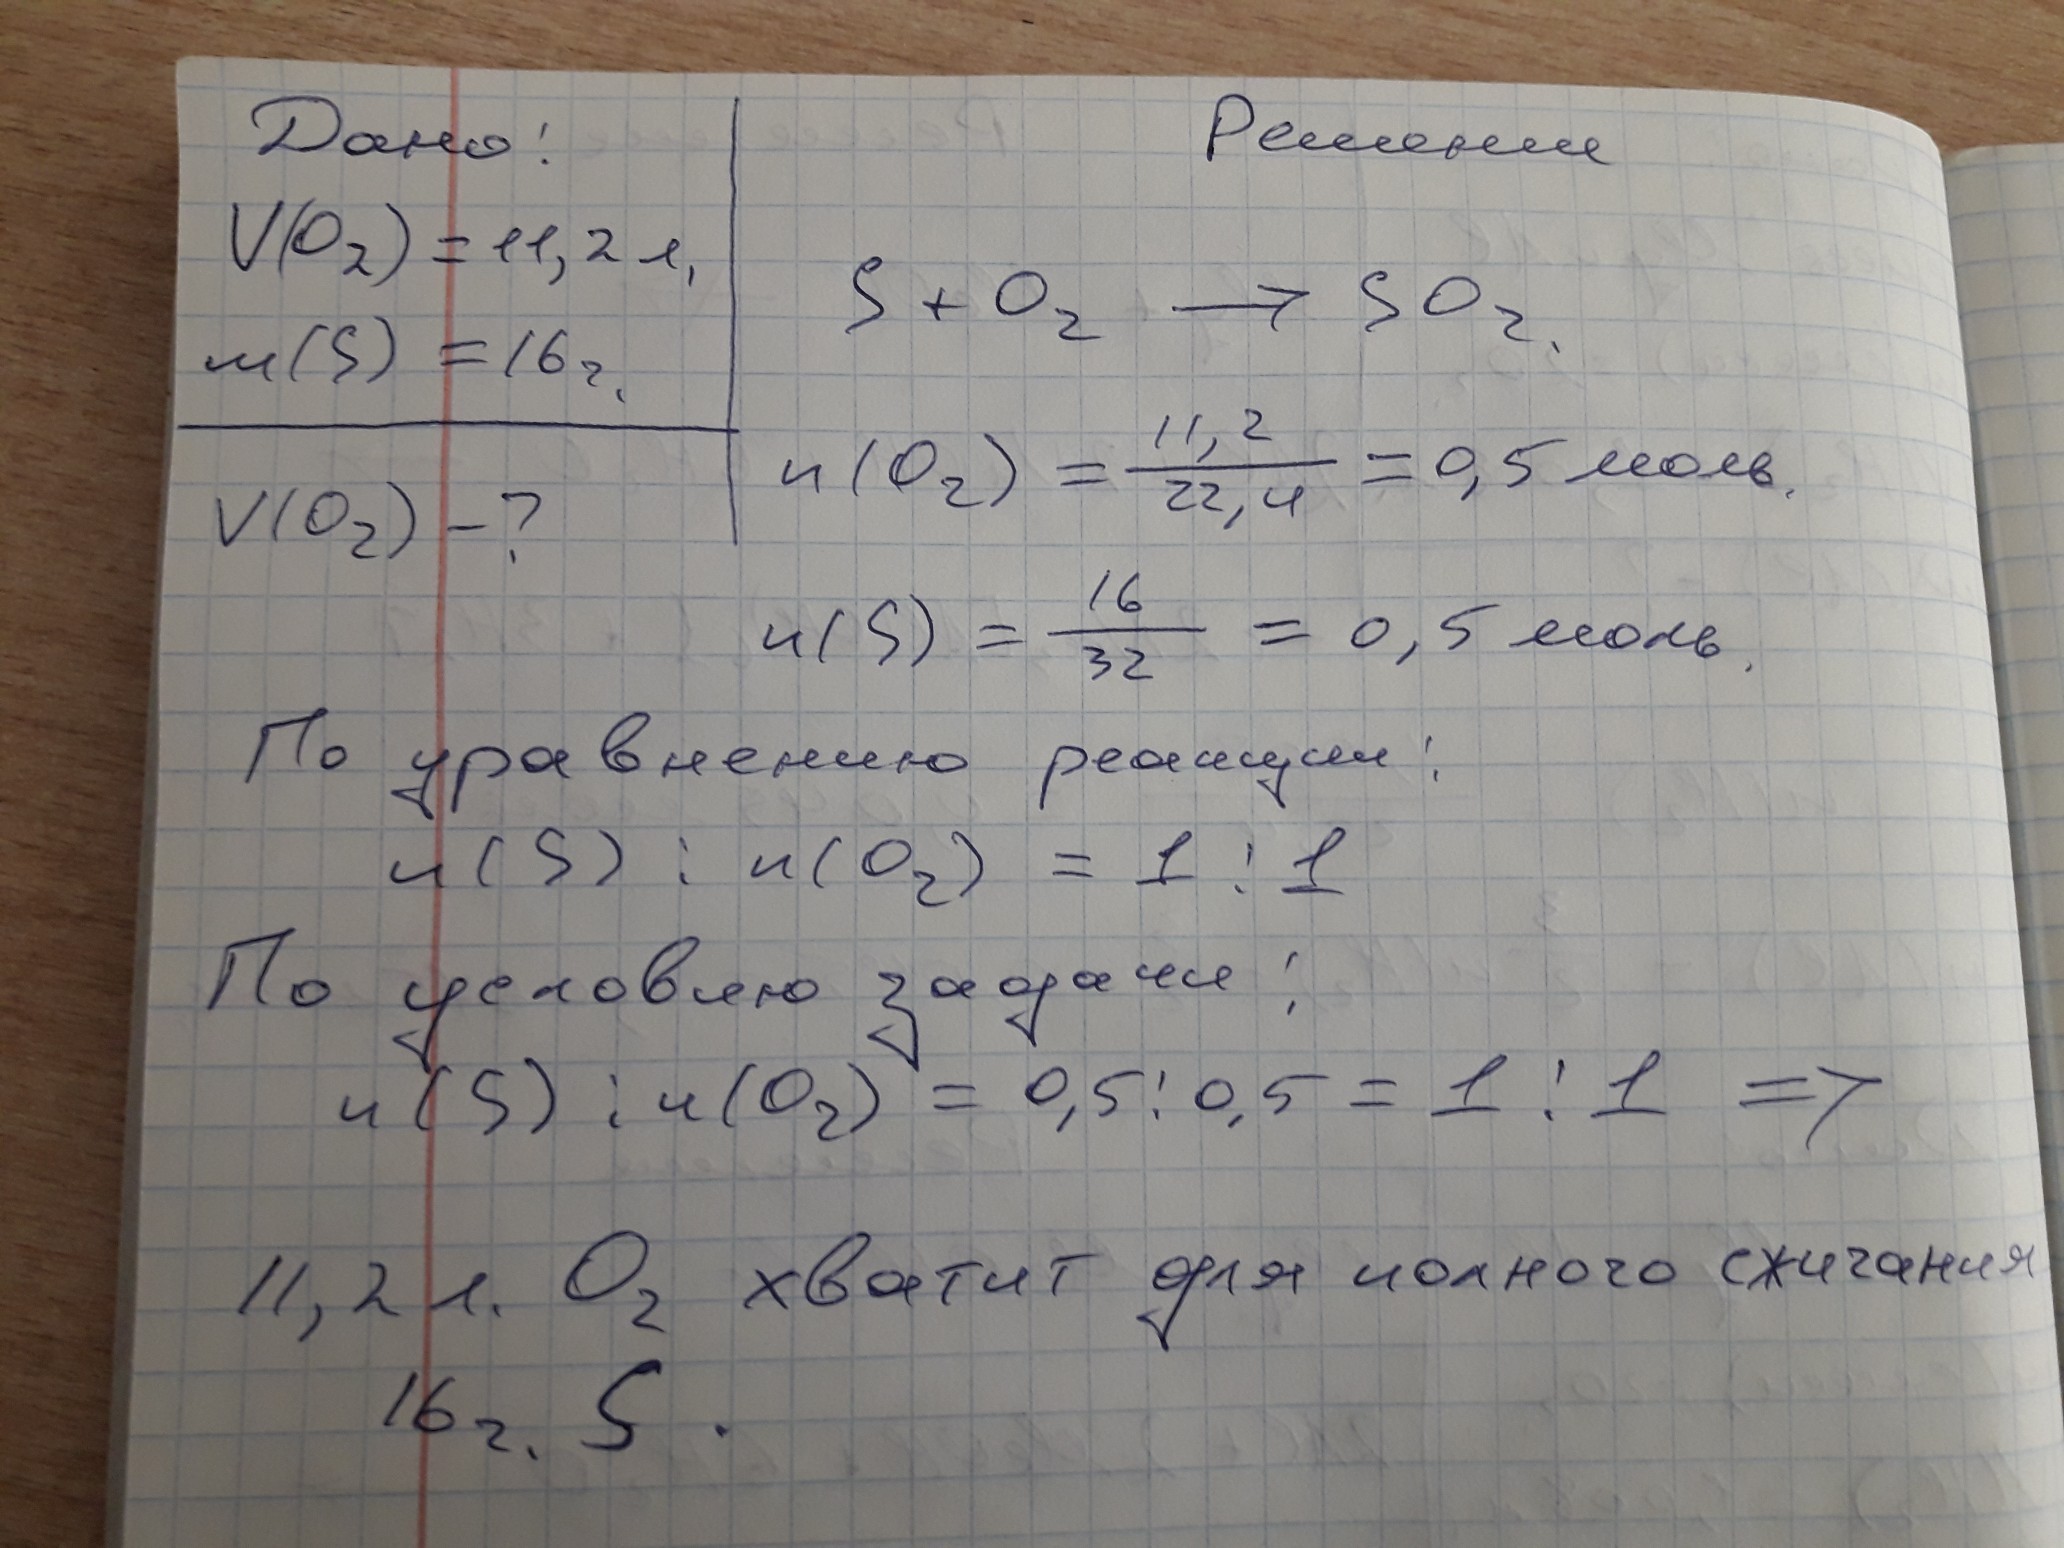 Дано:
V(O₂) = 11,2 л.
m(S) = 16 г.
V(O₂) – ?
Решение
S + O₂ → SO₂.
n(O₂) = 11,2 / 22,4 = 0,5 моль.
n(S) = 16 / 32 = 0,5 моль.
По уравнению реакции:
n(S) : n(O₂) = 1 : 1
По условию задачи:
n(S) : n(O₂) = 0,5 : 0,5 = 1 : 1 =>
11,2 л. O₂ хватит для полного сжигания
16 г. S.